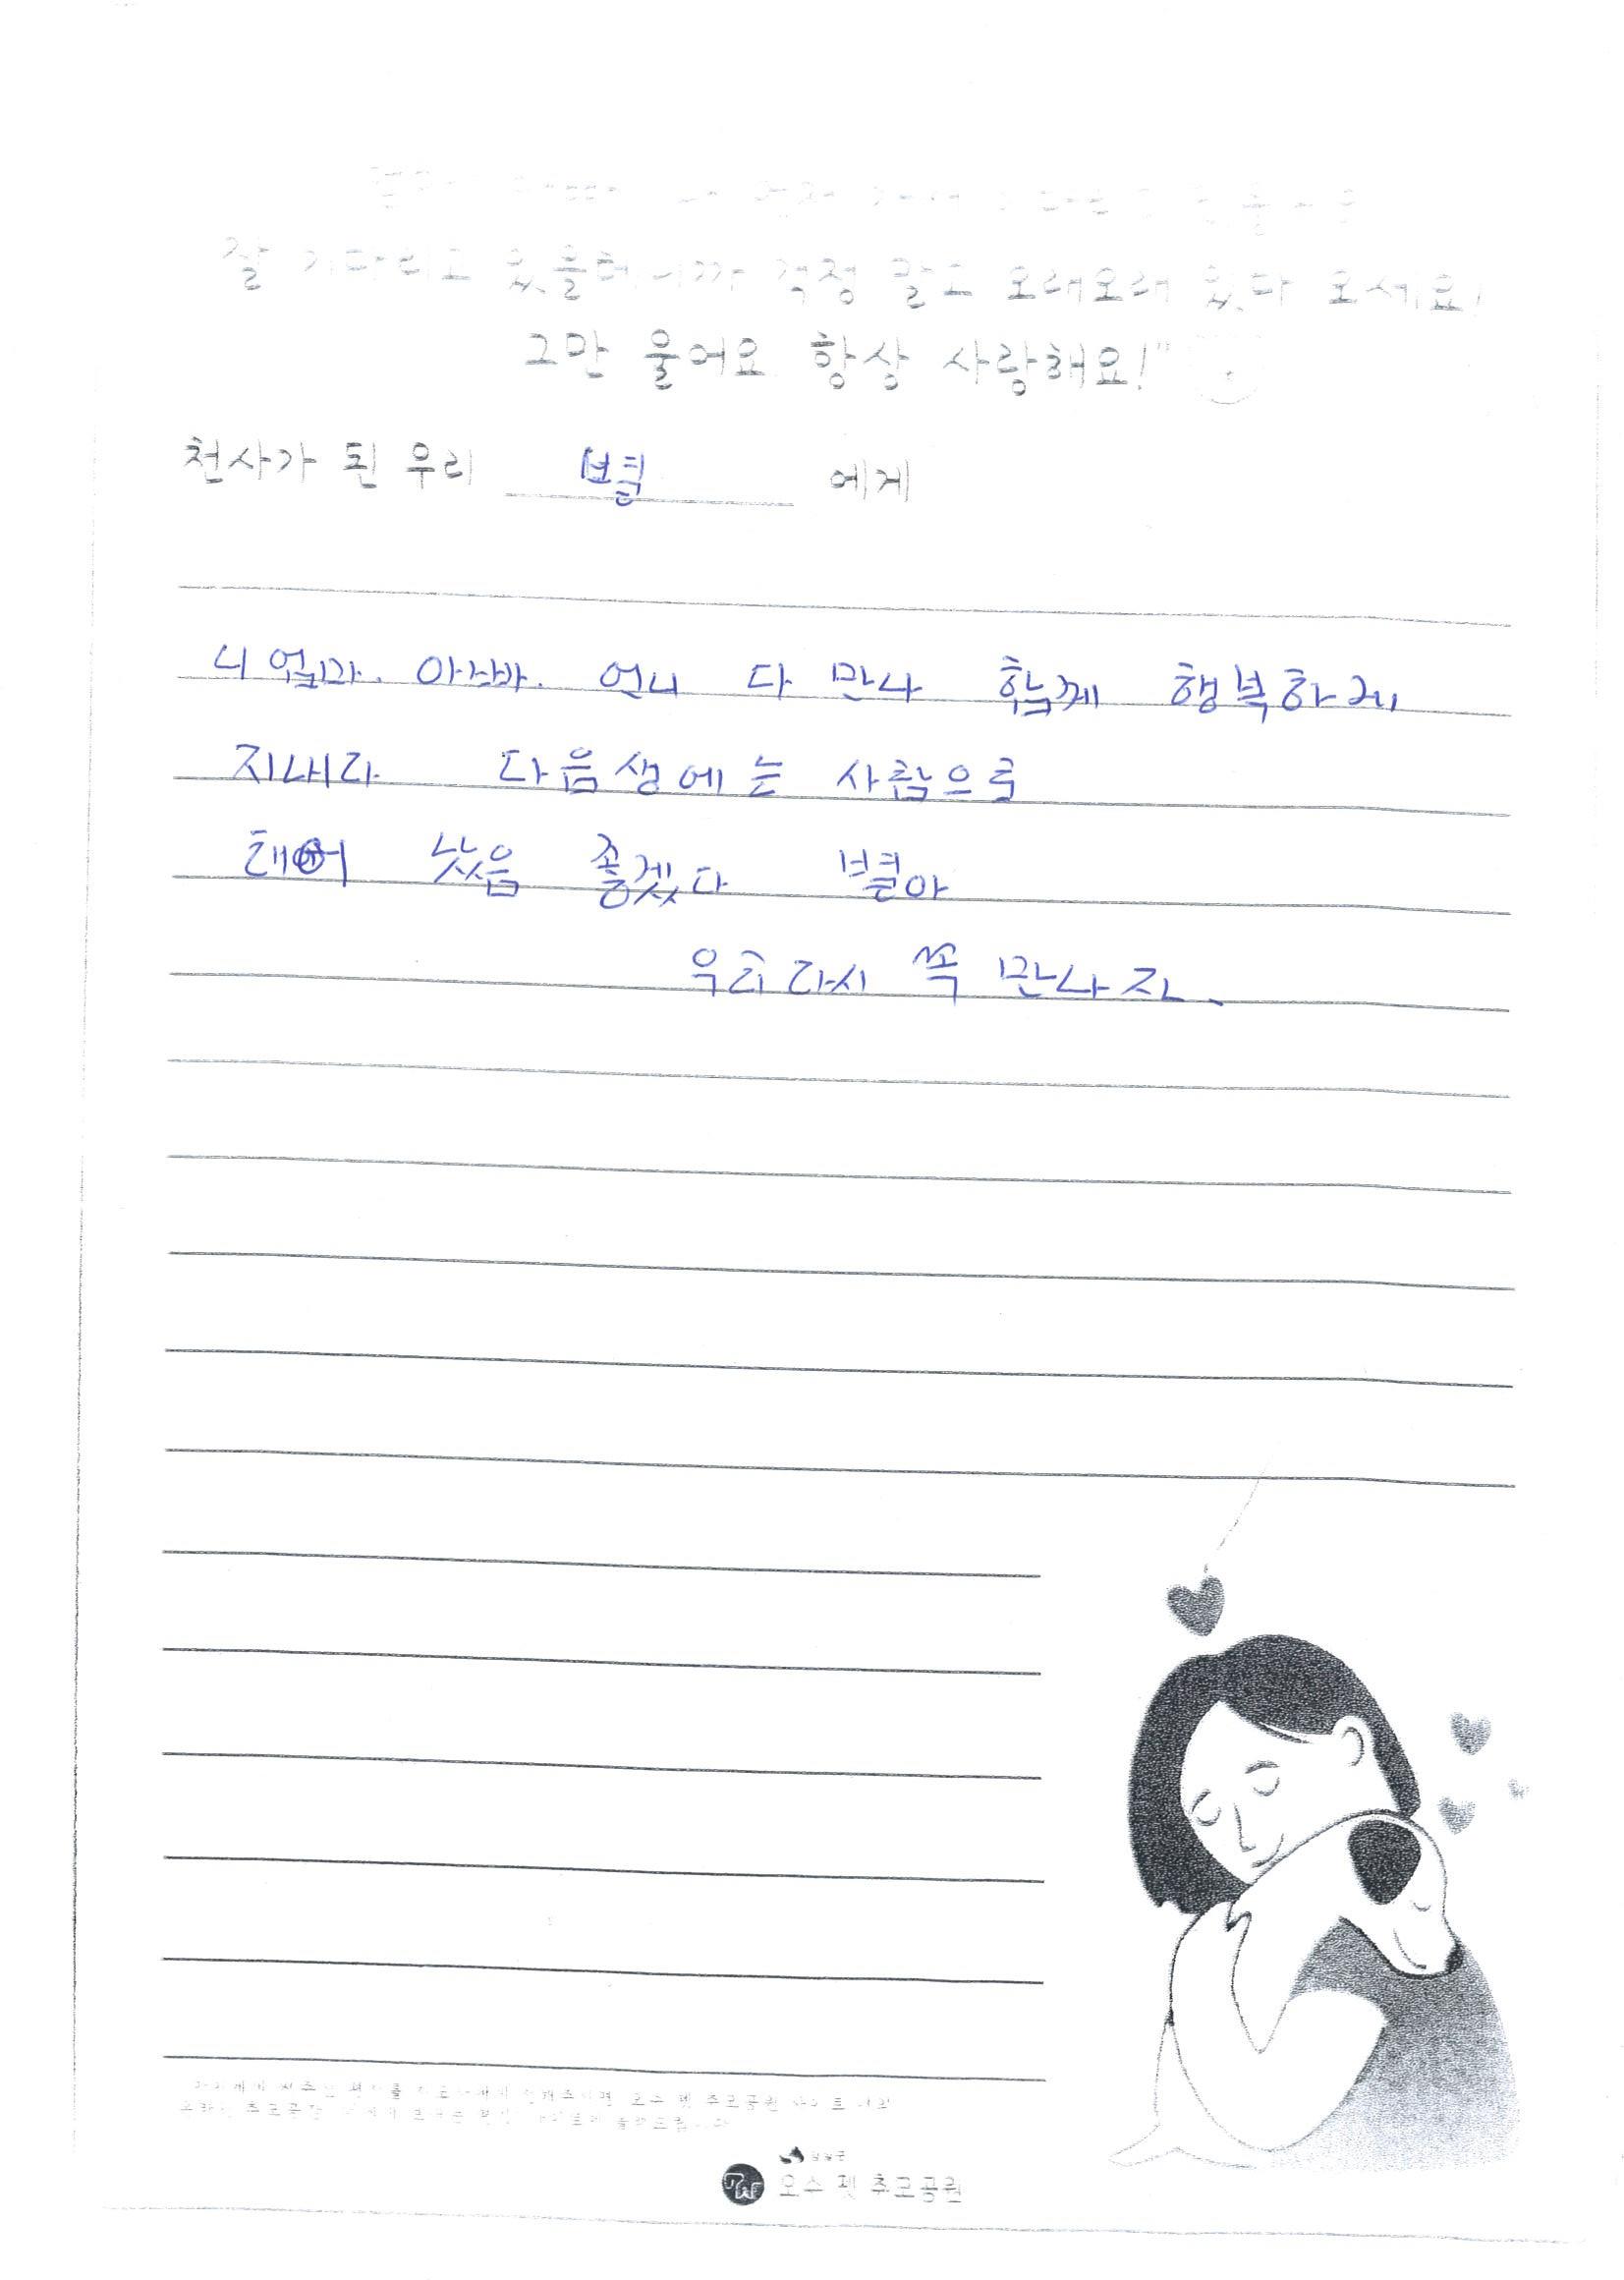 잘 기다리고 있을테니까 걱정 말고 오래오래 있다 오세요!
그만 울어요 항상 사랑해요!"
천사가 된 우리 별 에게
니 엄마. 아빠. 언니 다 만나 함께 행복하게
지내라 다음생에는 사람으로
태어 났음 좋겠다 별아
우리 다시 꼭 만나자.
오수 펫 추모공원